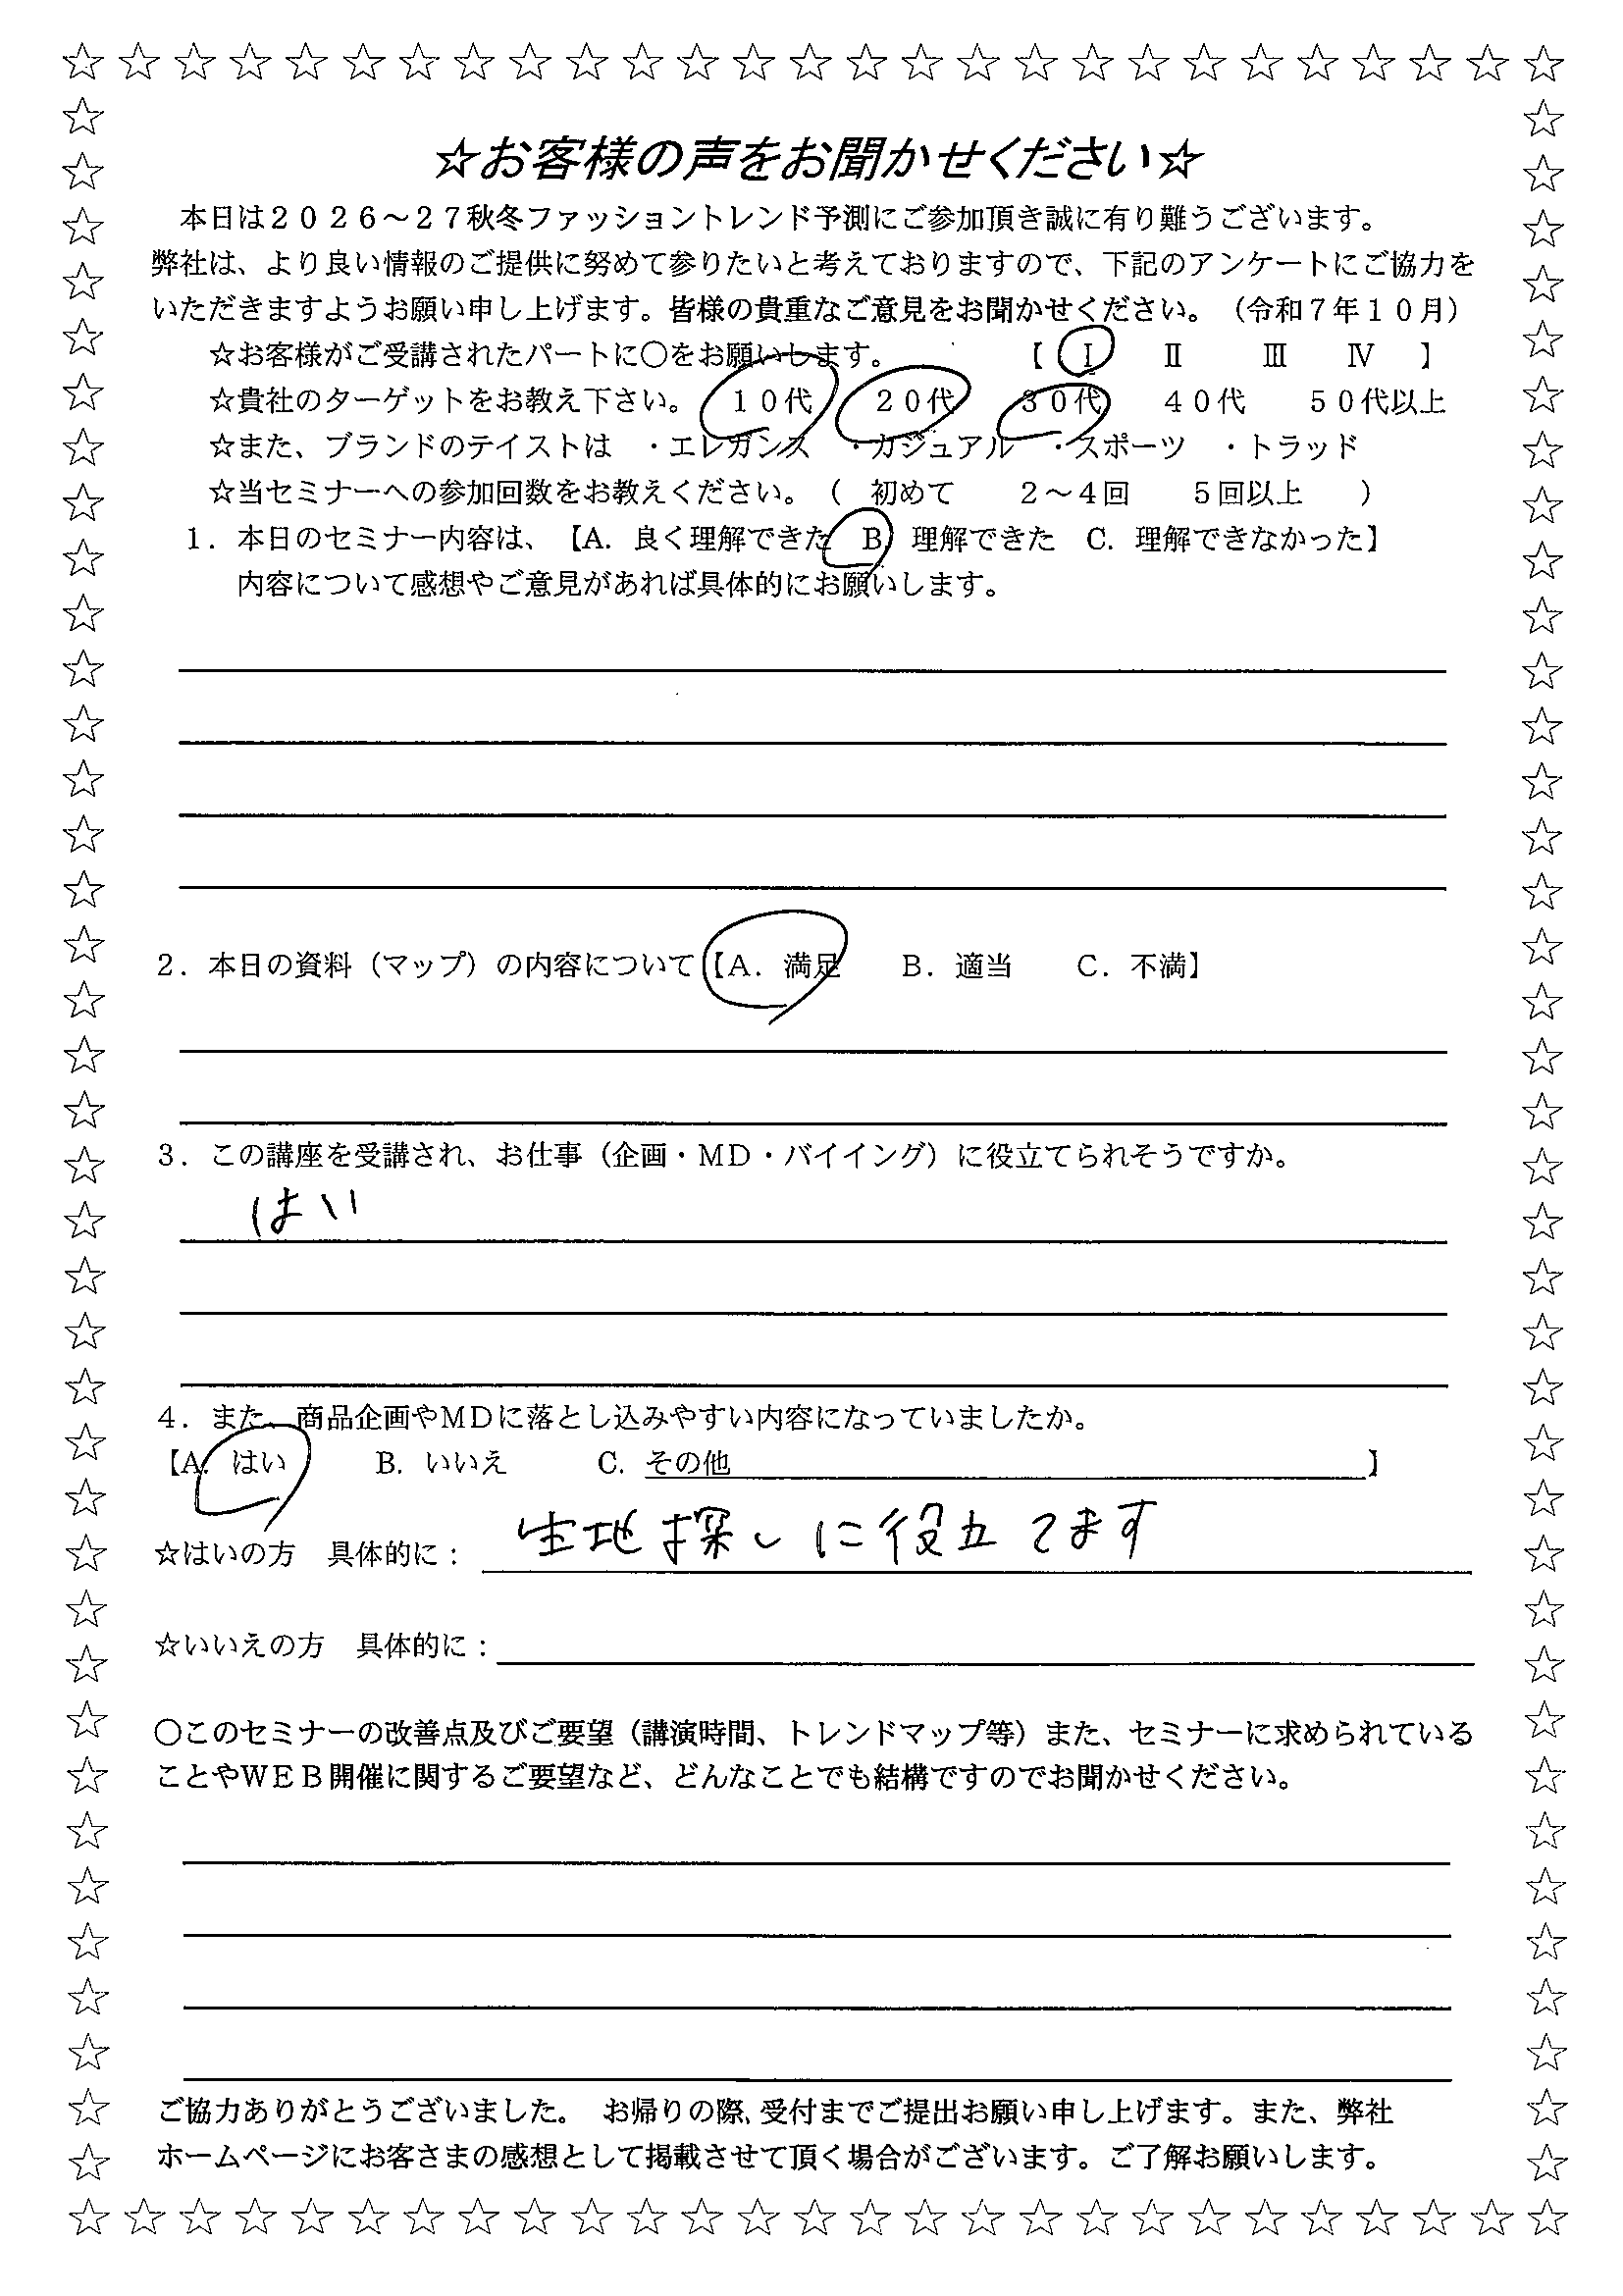 ☆お客様の声をお聞かせください☆
本日は2026～27秋冬ファッショントレンド予測にご参加頂き誠に有り難うございます。
弊社は、より良い情報のご提供に努めて参りたいと考えておりますので、下記のアンケートにご協力を
いただきますようお願い申し上げます。皆様の貴重なご意見をお聞かせください。（令和７年１０月）
☆お客様がご受講されたパートに〇をお願いします。 【 Ⅰ Ⅱ Ⅲ Ⅳ 】
☆貴社のターゲットをお教え下さい。 １０代 ２０代 ３０代 ４０代 ５０代以上
☆また、ブランドのテイストは ・エレガンス ・カジュアル ・スポーツ ・トラッド
☆当セミナーへの参加回数をお教えください。（ 初めて ２～４回 ５回以上 ）
１．本日のセミナー内容は、【A．良く理解できた B 理解できた C．理解できなかった】
内容について感想やご意見があれば具体的にお願いします。
２．本日の資料（マップ）の内容について【A．満足 B．適当 C．不満】
３．この講座を受講され、お仕事（企画・MD・バイイング）に役立てられそうですか。
はい
４．また、商品企画やMDに落とし込みやすい内容になっていましたか。
【A．はい B．いいえ C．その他 】
☆はいの方 具体的に： 生地探しに役立てます
☆いいえの方 具体的に：
〇このセミナーの改善点及びご要望（講演時間、トレンドマップ等）また、セミナーに求められている
ことやＷＥＢ開催に関するご要望など、どんなことでも結構ですのでお聞かせください。
ご協力ありがとうございました。 お帰りの際、受付までご提出お願い申し上げます。また、弊社
ホームページにお客さまの感想として掲載させて頂く場合がございます。ご了解お願いします。